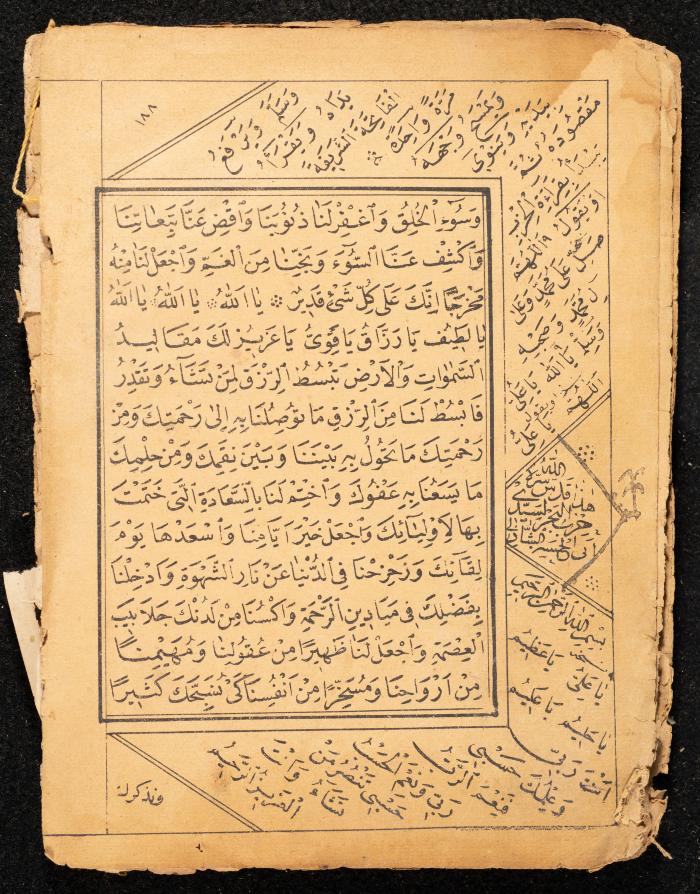 ١٨٨
وَسُوءَ الْخُلُقِ وَاَغْفِرْلَنَا ذُنُوبَنَا وَاقْضِ عَنَّا تَبِعَاتِنَا
وَاَكْشِفْ عَنَّا السُّوٓءَ وَنَجِّنَا مِنَ الْغَمِّ وَاَجْعَلْ لَنَا مِنْهُ
مَخْرَجًا اِنَّكَ عَلَى كُلِّ شَىْءٍ قَدِيرٌ يَا اَللهُ يَا اَللهُ يَا اَللهُ
يَا لَطِيفُ يَا رَزَّاقُ يَا قَوِىُّ يَا عَزِيزُ لَكَ مَقَالِيدُ
السَّمٰوَاتِ وَالْاَرْضِ تَبْسُطُ الرِّزْقَ لِمَنْ تَشَآءُ وَتَقْدِرُ
فَابْسُطْ لَنَا مِنَ الرِّزْقِ مَا تُوصِلُنَا بِهِ اِلٰى رَحْمَتِكَ وَمِنْ
رَحْمَتِكَ مَا تَحُولُ بِهِ بَيْنَنَا وَبَيْنَ نِقَمِكَ وَمِنْ حِلْمِكَ
مَا يَسَعُنَا بِهِ عَفْوُكَ وَاخْتِمْ لَنَا بِالسَّعَادَةِ الَّتِى خَتَمْتَ
بِهَا لِاَوْلِيَآئِكَ وَاجْعَلْ خَيْرَ اَيَّامِنَا وَاَسْعَدَهَا يَوْمَ
لِقَآئِكَ وَزَحْزِحْنَا فِى الدُّنْيَا عَنْ نَارِ الشَّهْوَةِ وَاَدْخِلْنَا
بِفَضْلِكَ فِى مَيَادِينِ الرَّحْمَةِ وَاَكْسُنَا مِنْ لَدُنْكَ جَلَابِيبَ
الْعِصْمَةِ وَاَجْعَلْ لَنَا ظَهِيرًا مِنْ عُقُولِنَا وَمُهَيْمِنًا
مِنْ اَرْوَاحِنَا وَمُسَخِّرًا مِنْ اَنْفُسِنَا كَىْ نُسَبِّحَكَ كَثِيرًا
بِسْمِ اللهِ الرَّحْمٰنِ الرَّحِيمِ
يَا عَلِىُّ يَا عَظِيمُ
يَا حَلِيمُ يَا عَلِيمُ
اَنْتَ رَبِّى
وَعِلْمُكَ حَسْبِى
فَنِعْمَ الرَّبُّ
رَبِّى وَنِعْمَ الْحَسْبُ
حَسْبِى تَنْصُرُ مَنْ
تَشَآءُ وَاَنْتَ
الْعَزِيزُ الرَّحِيمُ
وَنَذْكُرَكَ